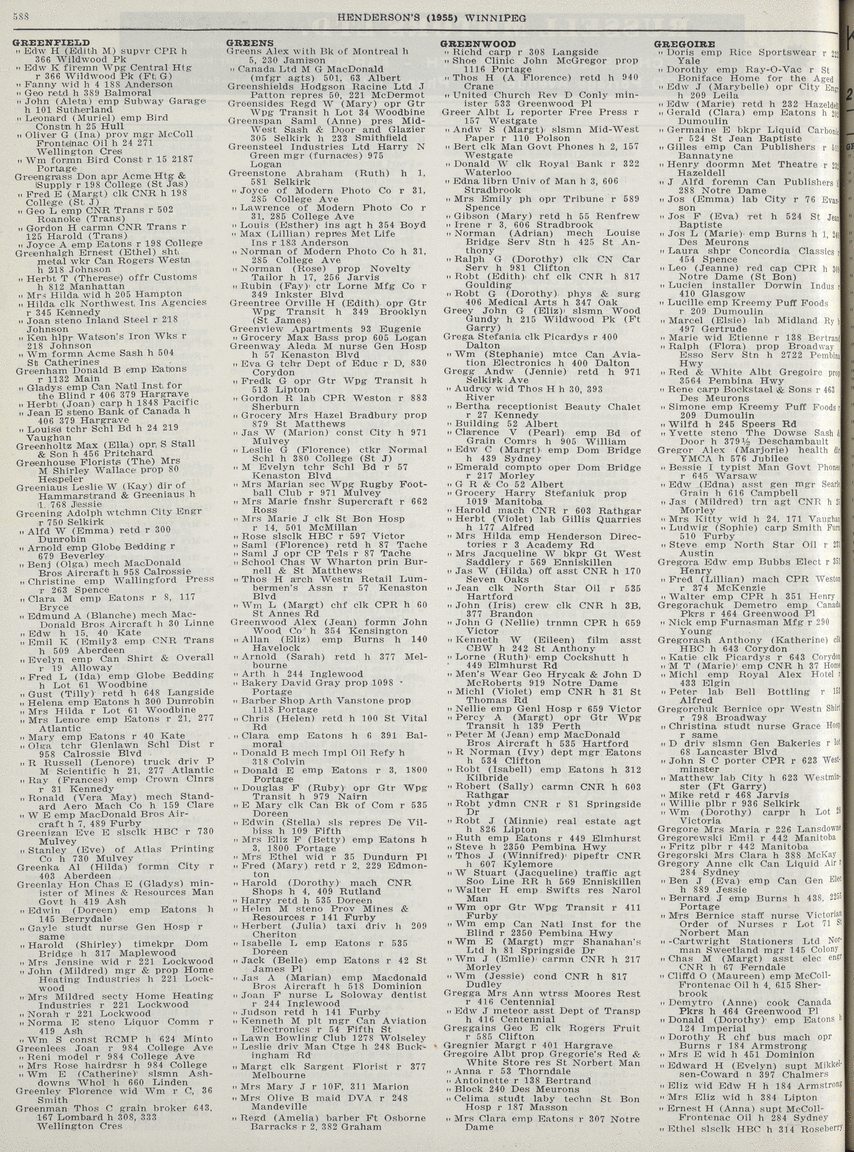 588
HENDERSON'S (1955) WINNIPEG
GREENFIELD
" Edw H (Edith M) supvr CPR h
366 Wildwood Pk
" Edw K firemn Wpg Central Htg
r 366 Wildwood Pk (Ft G)
" Fanny wid h 4 188 Anderson
" Geo retd h 389 Balmoral
" John (Aleta) emp Subway Garage
h 101 Sutherland
" Leonard (Muriel) emp Bird
Constn h 25 Hull
" Oliver G (Ina) prov mgr McColl
Frontenac Oil h 24 271
Wellington Cres
" Wm formn Bird Const r 15 2187
Portage
Greengrass Don apr Acme Htg &
Supply r 198 College (St Jas)
" Fred E (Margt) clk CNR h 198
College (St J)
" Geo L emp CNR Trans r 502
Roanoke (Trans)
" Gordon H carmn CNR Trans r
125 Harold (Trans)
" Joyce A emp Eatons r 198 College
Greenhalgh Ernest (Ethel) sht
metal wkr Can Rogers Westn
h 218 Johnson
" Herbt T (Therese) offr Customs
h 812 Manhattan
" Mrs Hilda wid h 205 Hampton
" Hilda clk Northwest Ins Agencies
r 345 Kennedy
" Joan steno Inland Steel r 218
Johnson
" Ken hlpr Watson's Iron Wks r
218 Johnson
" Wm formn Acme Sash h 504
St Catherines
Greenham Donald B emp Eatons
r 1132 Main
" Gladys emp Can Natl Inst for
the Blind r 406 379 Hargrave
" Herbt (Joan) carp h 1848 Pacific
" Jean E steno Bank of Canada h
406 379 Hargrave
" Louise tchr Schl Bd h 24 219
Vaughan
Greenholtz Max (Ella) opr S Stall
& Son h 456 Pritchard
Greenhouse Florists (The) Mrs
M Shirley Wallace prop 80
Hespeler
Greeniaus Leslie W (Kay) dir of
Hammarstrand & Greeniaus h
1, 768 Jessie
Greening Adolph wtchmn City Engr
r 750 Selkirk
" Alfd W (Emma) retd r 300
Dunrobin
" Arnold emp Globe Bedding r
679 Beverley
" Benj (Olga) mech MacDonald
Bros Aircraft h 958 Calrossie
" Christine emp Wallingford Press
r 263 Spence
" Clara M emp Eatons r 8, 117
Bryce
" Edmund A (Blanche) mech Mac-
Donald Bros Aircraft h 30 Linne
" Edw h 15, 40 Kate
" Emil K (Emily) emp CNR Trans
h 509 Aberdeen
" Evelyn emp Can Shirt & Overall
r 19 Alloway
" Fred L (Ida) emp Globe Bedding
h Lot 61 Woodbine
" Gust (Tilly) retd h 648 Langside
" Helena emp Eatons h 300 Dunrobin
" Mrs Hilda r Lot 61 Woodbine
" Mrs Lenore emp Eatons r 21, 277
Atlantic
" Mary emp Eatons r 40 Kate
" Olga tchr Glenlawn Schl Dist r
958 Calrossie Blvd
" R Russell (Lenore) truck driv P
M Scientific h 21, 277 Atlantic
" Ray (Frances) emp Crown Clnrs
r 31 Kennedy
" Ronald (Vera May) mech Stand-
ard Aero Mach Co h 159 Clare
" W E emp MacDonald Bros Air-
craft h 7, 489 Furby
Greenizan Eve E slsclk HBC r 730
Mulvey
" Stanley (Eve) of Atlas Printing
Co h 730 Mulvey
Greenka Al (Hilda) formn City r
403 Aberdeen
Greenlay Hon Chas E (Gladys) min-
ister of Mines & Resources Man
Govt h 419 Ash
" Edwin (Doreen) emp Eatons h
145 Berrydale
" Gayle studt nurse Gen Hosp r
same
" Harold (Shirley) timekpr Dom
Bridge h 317 Maplewood
" Mrs Jensine wid r 221 Lockwood
" John (Mildred) mgr & prop Home
Heating Industries h 221 Lock-
wood
" Mrs Mildred secty Home Heating
Industries r 221 Lockwood
" Norah r 221 Lockwood
" Norma E steno Liquor Comm r
419 Ash
" Wm S const RCMP h 624 Minto
Greenlees Joan r 984 College Ave
" Reni model r 984 College Ave
" Mrs Rose hairdrsr h 984 College
" Wm E (Catherine) slsmn Ash-
downs Whol h 660 Linden
Greenley Florence wid Wm r C, 36
Smith
Greenman Thos C grain broker 643,
167 Lombard h 308, 333
Wellington Cres
GREENS
Greens Alex with Bk of Montreal h
5, 230 Jamison
" Canada Ltd M G MacDonald
(mfgr agts) 501, 63 Albert
Greenshields Hodgson Racine Ltd J
Patton repres 50, 221 McDermot
Greensides Regd W (Mary) opr Gtr
Wpg Transit h Lot 34 Woodbine
Greenspan Saml (Anne) pres Mid-
West Sash & Door and Glazier
305 Selkirk h 233 Smithfield
Greensteel Industries Ltd Harry N
Green mgr (furnaces) 975
Logan
Greenstone Abraham (Ruth) h 1,
581 Selkirk
" Joyce of Modern Photo Co r 31,
285 College Ave
" Lawrence of Modern Photo Co r
31, 285 College Ave
" Louis (Esther) ins agt h 354 Boyd
" Max (Lillian) repres Met Life
Ins r 183 Anderson
" Norman of Modern Photo Co h 31,
285 College Ave
" Norman (Rose) prop Novelty
Tailor h 17, 256 Jarvis
" Rubin (Fay) ctr Lorne Mfg Co r
349 Inkster Blvd
Greentree Orville H (Edith) opr Gtr
Wpg Transit h 349 Brooklyn
(St James)
Greenview Apartments 93 Eugenie
" Grocery Max Bass prop 605 Logan
Greenway Aleda M nurse Gen Hosp
h 57 Kenaston Blvd
" Eva G tchr Dept of Educ r D, 830
Corydon
" Fredk G opr Gtr Wpg Transit h
513 Lipton
" Gordon R lab CPR Weston r 883
Sherburn
" Grocery Mrs Hazel Bradbury prop
879 St Matthews
" Jas W (Marion) const City h 971
Mulvey
" Leslie G (Florence) ctkr Normal
Schl h 380 College (St J)
" M Evelyn tchr Schl Bd r 57
Kenaston Blvd
" Mrs Marian sec Wpg Rugby Foot-
ball Club r 971 Mulvey
" Mrs Marie fnshr Supercraft r 662
Ross
" Mrs Marie J clk St Bon Hosp
r 14, 501 McMillan
" Rose slsclk HBC r 597 Victor
" Saml (Florence) retd h 87 Tache
" Saml J opr CP Tels r 87 Tache
" School Chas W Wharton prin Bur-
nell & St Matthews
" Thos H arch Westn Retail Lum-
bermen's Assn r 57 Kenaston
Blvd
" Wm L (Margt) chf clk CPR h 60
St Annes Rd
Greenwood Alex (Jean) formn John
Wood Co h 354 Kensington
" Allan (Eliz) emp Burns h 140
Havelock
" Arnold (Sarah) retd h 377 Mel-
bourne
" Arth h 244 Inglewood
" Bakery David Gray prop 1098
Portage
" Barber Shop Arth Vanstone prop
1118 Portage
" Chris (Helen) retd h 100 St Vital
Rd
" Clara emp Eatons h 6 391 Bal-
moral
" Donald B mech Impl Oil Refy h
318 Colvin
" Donald E emp Eatons r 3, 1800
Portage
" Douglas F (Ruby) opr Gtr Wpg
Transit h 979 Nairn
" E Mary clk Can Bk of Com r 535
Doreen
" Edwin (Stella) sls repres De Vil-
biss h 109 Fifth
" Mrs Eliz F (Betty) emp Eatons h
3, 1800 Portage
" Mrs Ethel wid r 35 Dundurn Pl
" Fred (Mary) retd r 2, 229 Edmon-
ton
" Harold (Dorothy) mach CNR
Shops h 4, 409 Rutland
" Harry retd h 535 Doreen
" Helen M steno Prov Mines &
Resources r 141 Furby
" Herbert (Julia) taxi driv h 209
Cheriton
" Isabelle L emp Eatons r 535
Doreen
" Jack (Belle) emp Eatons r 42 St
James Pl
" Jas A (Marian) emp Macdonald
Bros Aircraft h 518 Dominion
" Joan F nurse L Soloway dentist
r 244 Inglewood
" Judson retd h 141 Furby
" Kenneth M plt mgr Can Aviation
Electronics r 54 Fifth St
" Lawn Bowling Club 1278 Wolseley
" Leslie driv Man Ctge h 248 Buck-
ingham Rd
" Margt clk Sargent Florist r 377
Melbourne
" Mrs Mary J r 10F, 311 Marion
" Mrs Olive B maid DVA r 248
Mandeville
" Regd (Amelia) barber Ft Osborne
Barracks r 2, 382 Graham
GREENWOOD
" Richd carp r 308 Langside
" Shoe Clinic John McGregor prop
1116 Portage
" Thos H (A Florence) retd h 940
Crane
" United Church Rev D Conly min-
ister 533 Greenwood Pl
Greer Albt L reporter Free Press r
157 Westgate
" Andw S (Margt) slsmn Mid-West
Paper r 110 Polson
" Bert clk Man Govt Phones h 2, 157
Westgate
" Donald W clk Royal Bank r 322
Waterloo
" Edna libm Univ of Man h 3, 606
Stradbrook
" Mrs Emily ph opr Tribune r 589
Spence
" Gibson (Mary) retd h 55 Renfrew
" Irene r 3, 606 Stradbrook
" Norman (Adrian) mech Louise
Bridge Serv Stn h 425 St An-
thony
" Ralph G (Dorothy) clk CN Car
Serv h 981 Clifton
" Robt (Edith) chf clk CNR h 817
Goulding
" Robt G (Dorothy) phys & surg
406 Medical Arts h 347 Oak
Greey John G (Eliz) slsmn Wood
Gundy h 215 Wildwood Pk (Ft
Garry)
Grega Stefania clk Picardys r 400
Dalton
" Wm (Stephanie) mtce Can Avia-
tion Electronics h 400 Dalton
Gregg Andw (Jennie) retd h 971
Selkirk Ave
" Audrey wid Thos H h 30, 393
River
" Bertha receptionist Beauty Chalet
r 27 Kennedy
" Building 52 Albert
" Clarence V (Pearl) emp Bd of
Grain Comrs h 905 William
" Edw C (Margt) emp Dom Bridge
h 439 Sydney
" Emerald compto oper Dom Bridge
r 217 Morley
" G R & Co 52 Albert
" Grocery Harry Stefaniuk prop
1019 Manitoba
" Harold mach CNR r 603 Rathgar
" Herbt (Violet) lab Gillis Quarries
h 177 Alfred
" Mrs Hilda emp Henderson Direc-
tories r 3 Academy Rd
" Mrs Jacqueline W bkpr Gt West
Saddlery r 569 Enniskillen
" Jas W (Hilda) off asst CNR h 170
Seven Oaks
" Jean clk North Star Oil r 535
Hartford
" John (Iris) crew clk CNR h 3B,
377 Brandon
" John G (Nellie) trnmn CPR h 659
Victor
" Kenneth W (Eileen) film asst
CBW h 242 St Anthony
" Lorne (Ruth) emp Cockshutt h
449 Elmhurst Rd
" Men's Wear Geo Hrycak & John D
McRoberts 919 Notre Dame
" Michl (Violet) emp CNR h 31 St
Thomas Rd
" Nellie emp Genl Hosp r 659 Victor
" Percy A (Margt) opr Gtr Wpg
Transit h 139 Ferth
" Peter M (Jean) emp MacDonald
Bros Aircraft h 535 Hartford
" R Norman (Ivy) dept mgr Eatons
h 534 Clifton
" Robt (Isabell) emp Eatons h 312
Kilbride
" Robert (Sally) carmn CNR h 603
Rathgar
" Robt ydmn CNR r 81 Springside
Dr
" Robt J (Minnie) real estate agt
h 826 Lipton
" Ruth emp Eatons r 449 Elmhurst
" Steve h 2350 Pembina Hwy
" Thos J (Winnifred) pipeftr CNR
h 607 Kylemore
" W Stuart (Jacqueline) traffic agt
Soo Line RR h 569 Enniskillen
" Walter H emp Swifts res Narol
Man
" Wm opr Gtr Wpg Transit r 411
Furby
" Wm emp Can Natl Inst for the
Blind r 2350 Pembina Hwy
" Wm E (Margt) mgr Shanahan's
Ltd h 81 Springside Dr
" Wm J (Emlie) carmn CNR h 217
Morley
" Wm (Jessie) cond CNR h 817
Dudley
Gregga Mrs Ann wtrss Moores Rest
r 416 Centennial
" Edw J meteor asst Dept of Transp
h 416 Centennial
Greggains Geo E clk Rogers Fruit
r 585 Clifton
Gregnier Margt r 401 Hargrave
Gregoire Albt prop Gregorie's Red &
White Store res St Norbert Man
" Anna r 53 Thorndale
" Antoinette r 138 Bertrand
" Block 240 Des Meurons
" Celima studt laby techn St Bon
Hosp r 187 Masson
" Mrs Clara emp Eatons r 307 Notre
Dame
GREGOIRE
" Doris emp Rice Sportswear r
Yale
" Dorothy emp Ray-O-Vac r St
Boniface Home for the Aged
" Edw J (Marybelle) opr City
h 209 Leila
" Edw (Marie) retd h 232 Hazeldell
" Gerald (Clara) emp Eatons h
Dumoulin
" Germaine E bkpr Liquid Carbonic
r 524 St Jean Baptiste
" Gilles emp Can Publishers r
Bannatyne
" Henry doormn Met Theatre r
Hazeldell
" J Alfd foremn Can Publishers
288 Notre Dame
" Jos (Emma) lab City r 76 Evan-
son
" Jos F (Eva) ret h 524 St Jean
Baptiste
" Jos L (Marie) emp Burns h 1,
Des Meurons
" Laura shpr Concordia Classics
454 Spence
" Leo (Jeanne) red cap CPR h
Notre Dame (St Bon)
" Lucien installer Dorwin Indus r
410 Glasgow
" Lucille emp Kreemy Puff Foods
r 209 Dumoulin
" Marcel (Elsie) lab Midland Ry h
497 Gertrude
" Marie wid Etienne r 138 Bertrand
" Ralph (Flora) prop Broadway
Esso Serv Stn h 2722 Pembina
Hwy
" Red & White Albt Gregoire prop
3564 Pembina Hwy
" Rene carp Bockstael & Sons r 463
Des Meurons
" Simone emp Kreemy Puff Foods r
209 Dumoulin
" Wilfd h 245 Speers Rd
" Yvette steno The Dowse Sash &
Door h 379½ Deschambault
Gregor Alex (Marjorie) health dir
YMCA h 576 Jubilee
" Bessie I typist Man Govt Phones
r 645 Warsaw
" Edw (Edna) asst gen mgr Searle
Grain h 616 Campbell
" Jas (Mildred) trn agt CNR h
Morley
" Mrs Kitty wid h 24, 171 Vaughan
" Ludwig (Sophie) carp Smith
510 Furby
" Steve emp North Star Oil r
Austin
Gregora Edw emp Bubbs Elect r
Henry
" Fred (Lillian) mach CPR Weston
r 374 McKenzie
" Walter emp CPR h 351 Henry
Gregorachuk Demetro emp Canada
Pkrs r 464 Greenwood Pl
" Nick emp Furnasman Mfg r 290
Young
Gregorash Anthony (Katherine) clk
HBC h 643 Corydon
" Katie clk Picardys r 643 Corydon
" M T (Marie) emp CNR h 37 Home
" Michl emp Royal Alex Hotel r
433 Elgin
" Peter lab Bell Bottling r
Alfred
Gregorchuk Bernice opr Westn Shirt
r 798 Broadway
" Christina studt nurse Grace Hosp
r same
" D driv slsmn Gen Bakeries r lot
68 Lancaster Blvd
" John S C porter CPR r 623 West-
minster
" Matthew lab City h 623 Westmin-
ster (Ft Garry)
" Mike retd r 468 Jarvis
" Willie plbr r 936 Selkirk
" Wm (Dorothy) carpr h Lot
Victoria
Gregore Mrs Maria r 226 Lansdowne
Gregorowski Emil r 442 Manitoba
" Fritz plbr r 442 Manitoba
Gregorski Mrs Clara h 388 McKay
Gregory Anne clk Can Liquid Air r
284 Sydney
" Ben J (Eva) emp Can Gen Elec
h 889 Jessie
" Bernard J emp Burns h 438, 2255
Portage
" Mrs Bernice staff nurse Victorian
Order of Nurses r Lot 71 St
Norbert Man
" -Cartwright Stationers Ltd Nor-
man Sweetland mgr 145 Colony
" Chas M (Margt) asst elec engr
CNR h 67 Ferndale
" Cliffd O (Maureen) emp McColl-
Frontenac Oil h 4, 615 Sher-
brook
" Demytro (Anne) cook Canada
Pkrs h 464 Greenwood Pl
" Donald (Dorothy) emp Eatons h
124 Imperial
" Dorothy R chf bus mach opr
Burns r 184 Armstrong
" Mrs E wid h 451 Dominion
" Edward H (Evelyn) supt Mikkel-
sen-Coward h 397 Chalmers
" Eliz wid Edw H h 184 Armstrong
" Mrs Eliz wid h 384 Lipton
" Ernest H (Anna) supt McColl-
Frontenac Oil h 284 Sydney
" Ethel slsclk HBC h 314 Roseberry